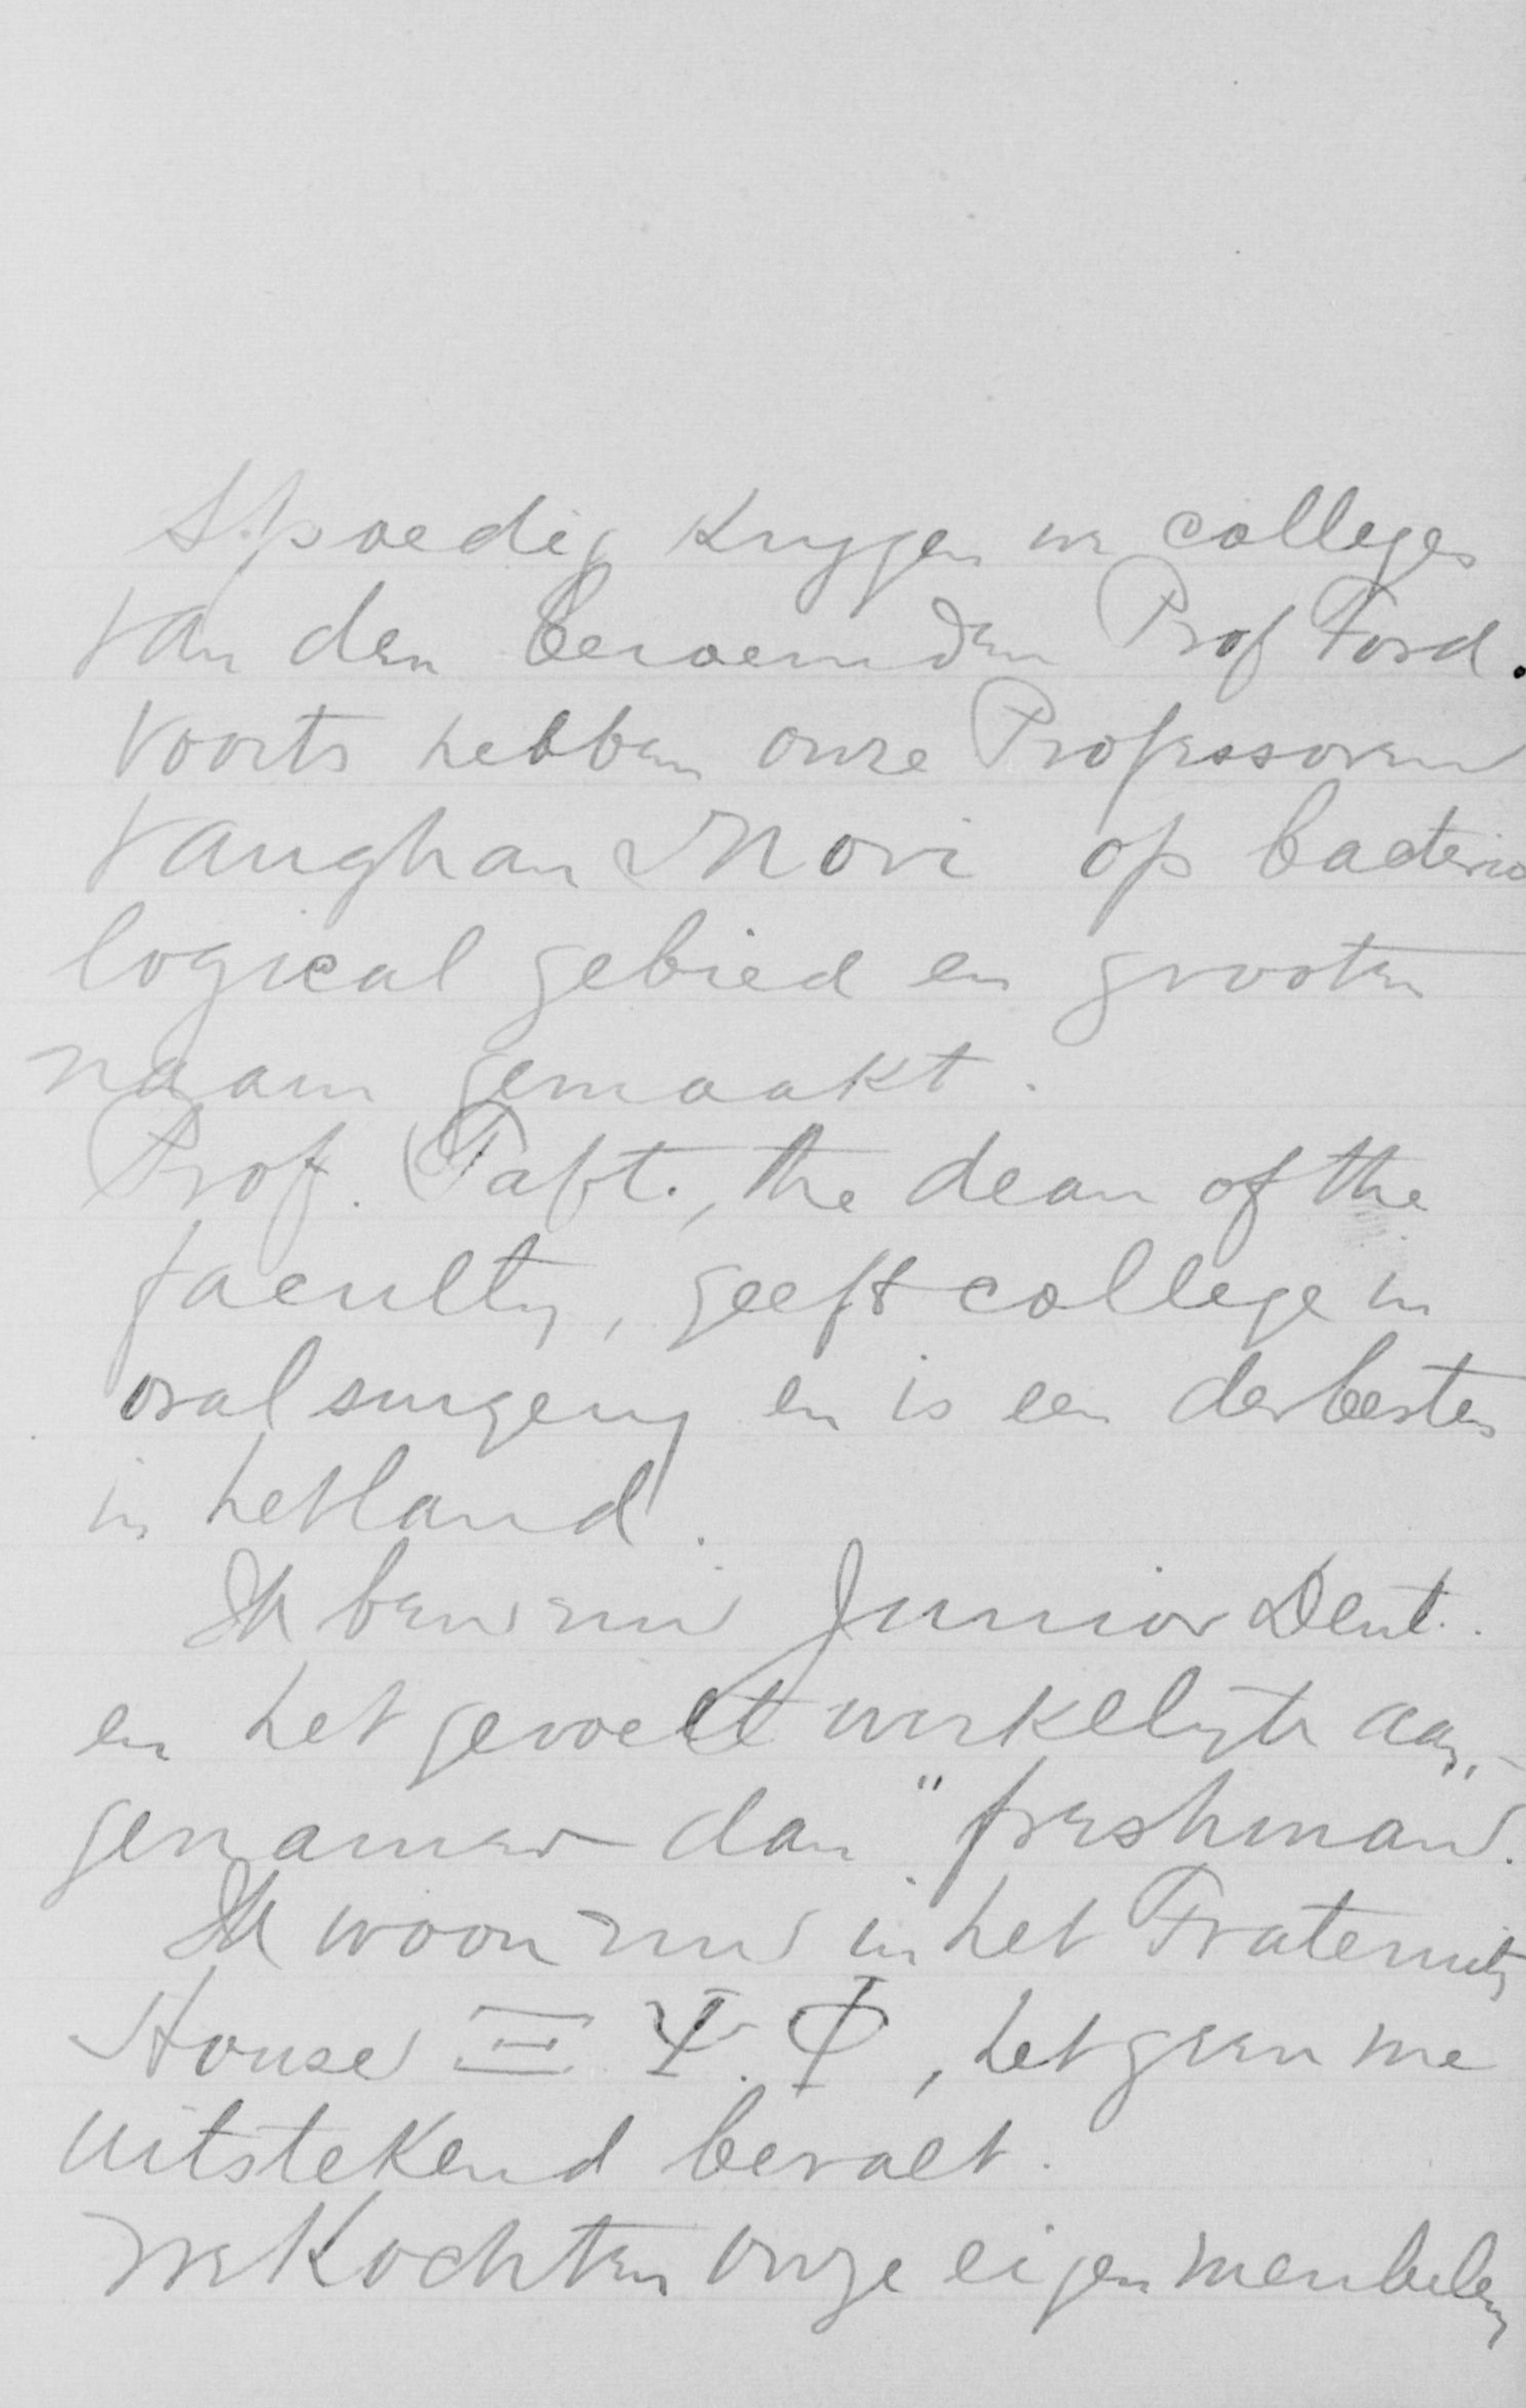 Spoedig krygen we colleges
van den beroemden Prof Ford.
Voorts hebben onze Professoren
Vaughan & Novi op bacterio
logical gebied en grooten
naam gemaakt.
Prof. Taft., the dean of the
faculty, geeft college in
oral surgery en is een der besten
in het land.
Ik ben nu Junior Dent.
en het gevoelt werkelyk aan-
genamer dan "freshman".
Ik woon nu in het Fraternity
House Ξ Ψ. Φ, hetgeen me
uitstekend bevalt.
We kochten onze eigen meubelen